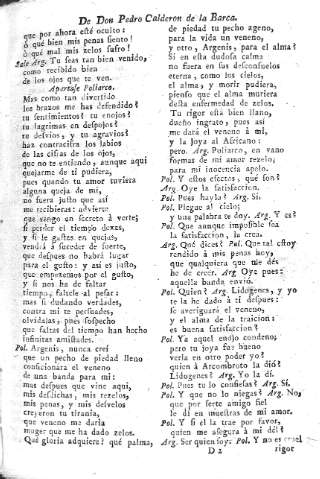 De Don Pedro Calderon de la Barca.
que por ahora esté oculto:
ò qué bien mis penas siento!
ò qué mal mis zelos sufro!
Sale Arg. Tu seas tan bien venido,
como recibido bien
de los ojos que te ven.
Apartase Poliarco.
Mas como tan divertido
los brazos me has defendido?
tu sentimientos? tu enojos?
tu lagrimas en despojos?
tu desvios, y tu agravios?
haz contracifra los labios
de las cifras de los ojos,
que no te entiendo, aunque aqui
quejarme de ti pudiera,
pues quando tu amor tuviera
alguna queja de mi,
no fuera justo que asi
me recibieras: advierte
que tengo un secreto à verte;
si perder el tiempo dexes,
y si le gastas en quejas,
vendrá à suceder de suerte,
que despues no habrá lugar
para el gusto: y asi es justo,
que empecemos por el gusto,
y si nos ha de faltar
tiempo, faltele al pesar:
mas si dudando verdades,
contra mi te persuades,
olvidalas, pues sospecho
que faltas del tiempo han hecho
infinitas amistades.
Pol. Argenis, nunca creí
que un pecho de piedad lleno
conficionára el veneno
de una banda para mi:
mas despues que vine aqui,
mis desdichas, mis rezelos,
mis penas, y mis desvelos
creyeron tu tirania,
que veneno me daria
muger que me ha dado zelos.
Qué gloria adquiere? qué palma,
de piedad tu pecho ageno,
para la vida un veneno,
y otro, Argenis, para el alma?
Si en esta dudosa calma
no fuera en sus desconsuelos
eterna, como los cielos,
el alma, y morir pudiera,
pienso que el alma muriera
desta enfermedad de zelos.
Tu rigor esta bien llano,
dueño ingrato, pues asi
me dará el veneno à mi,
y la joya al Africano:
pero. Arg. Poliarco, en vano
formas de mi amor rezelo;
para mi inocencia apelo.
Pol. Y estos efectos, qué son?
Arg. Oye la satisfaccion.
Pol. Pues hayla? Arg. Sí.
Pol. Plegue al cielo;
y una palabra te doy. Arg. Y es?
Pol. Que aunque imposible sea
la satisfaccion, la crea.
Arg. Qué dices? Pol. Que tal estoy
rendido à mis penas hoy,
que qualquiera que me dés
he de creer. Arg Oye pues:
aquella banda envió.
Pol. Quien? Arg. Lidogenes, y yo
te la he dado à ti despues:
se averiguará el veneno,
y el alma de la traicion:
es buena satisfaccion?
Pol. Ya aquel enojo condeno;
pero tu joya fue bueno
verla en otro poder yo?
quien à Arcombroto la dió?
Lidogenes? Arg. Yo la dí.
Pol. Pues tu lo confiesas? Arg. Sí.
Pol. Y que no lo niegas? Arg. No,
que por serte amigo fiel
le dí en muestras de mi amor.
Pol. Y si el la trae por favor,
quien me asegura à mi dél?
Arg. Ser quien soy: Pol. Y no es cruel
D 2
rigor